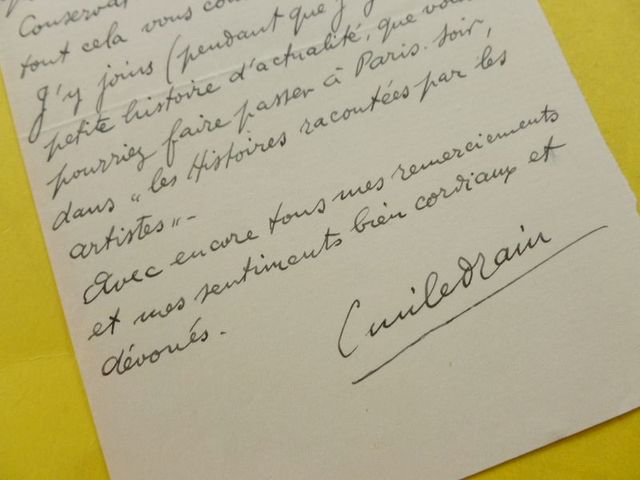 Conserva
tout cela vous con
J'y joins (pendant que j'y
petite histoire d'actualité, que vous
pourriez faire passer à Paris-Soir,
dans "les Histoires racontées par les
artistes" -
Avec encore tous mes remerciements
et mes sentiments bien cordiaux et
dévoués.
Emile Drain